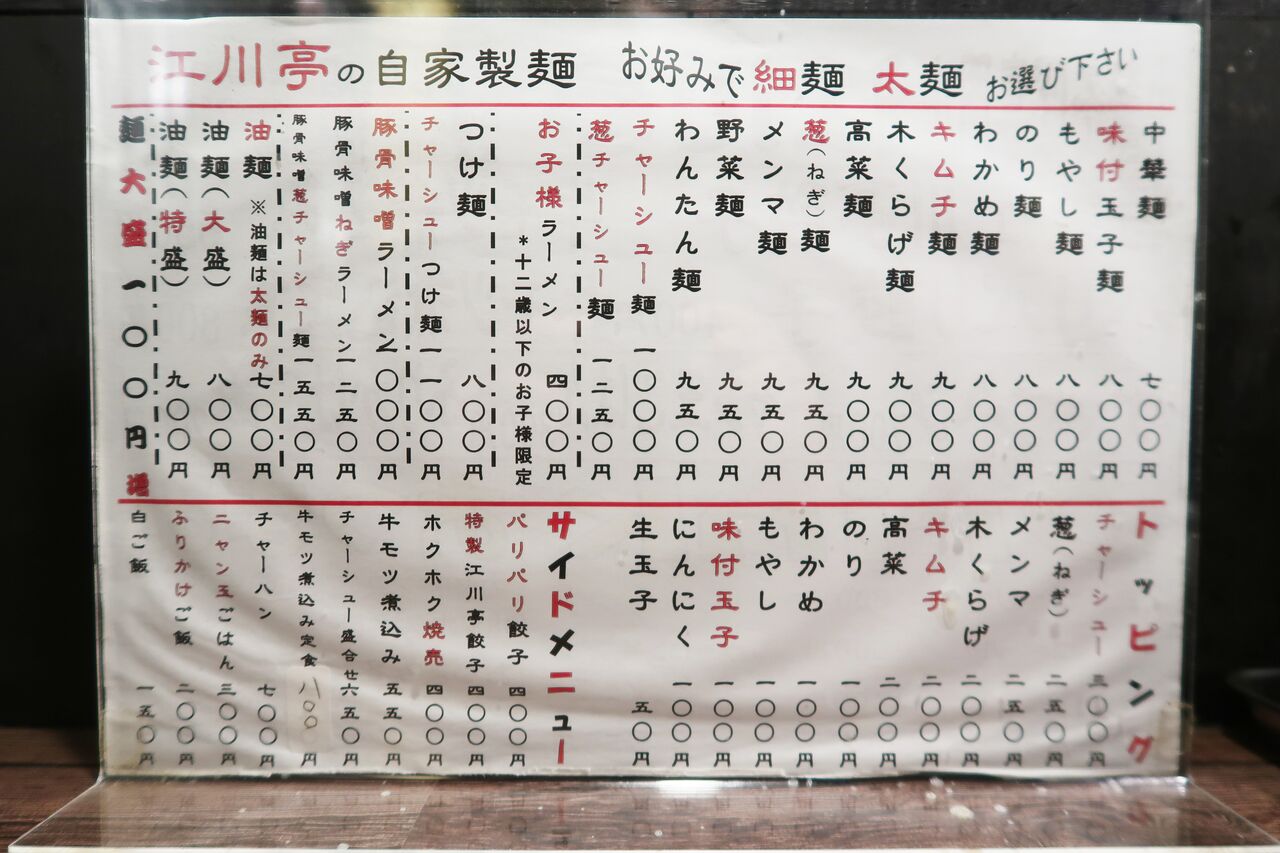 江川亭の自家製麺 お好みで細麺 太麺 お選び下さい
中華麺 七〇〇円
味付玉子麺 八〇〇円
もやし麺 八〇〇円
のり麺 八〇〇円
わかめ麺 八〇〇円
キムチ麺 九〇〇円
木くらげ麺 九〇〇円
高菜麺 九〇〇円
葱(ねぎ)麺 九五〇円
メンマ麺 九五〇円
野菜麺 九五〇円
わんたん麺 九五〇円
チャーシュー麺 一〇〇〇円
葱チャーシュー麺 一二五〇円
お子様ラーメン 四〇〇円
*十二歳以下のお子様限定
つけ麺 八〇〇円
チャーシューつけ麺 一一〇〇円
豚骨味噌ラーメン 一〇〇〇円
豚骨味噌ねぎラーメン 一二五〇円
豚骨味噌葱チャーシュー麺 一五五〇円
油麺 ※油麺は太麺のみ 七〇〇円
油麺(大盛) 八〇〇円
油麺(特盛) 九〇〇円
麺大盛一〇〇円増
トッピング
チャーシュー 三〇〇円
葱(ねぎ) 二五〇円
メンマ 二五〇円
木くらげ 二〇〇円
キムチ 二〇〇円
高菜 二〇〇円
のり 一〇〇円
わかめ 一〇〇円
もやし 一〇〇円
味付玉子 一〇〇円
にんにく 一〇〇円
生玉子 五〇円
サイドメニュー
パリパリ餃子 四〇〇円
特製江川亭餃子 四〇〇円
ホクホク焼売 四〇〇円
牛モツ煮込み 五五〇円
チャーシュー盛合せ 六五〇円
牛モツ煮込み定食 八〇〇円
チャーハン 七〇〇円
ニャン玉ごはん 三〇〇円
ふりかけご飯 二〇〇円
白ご飯 一五〇円